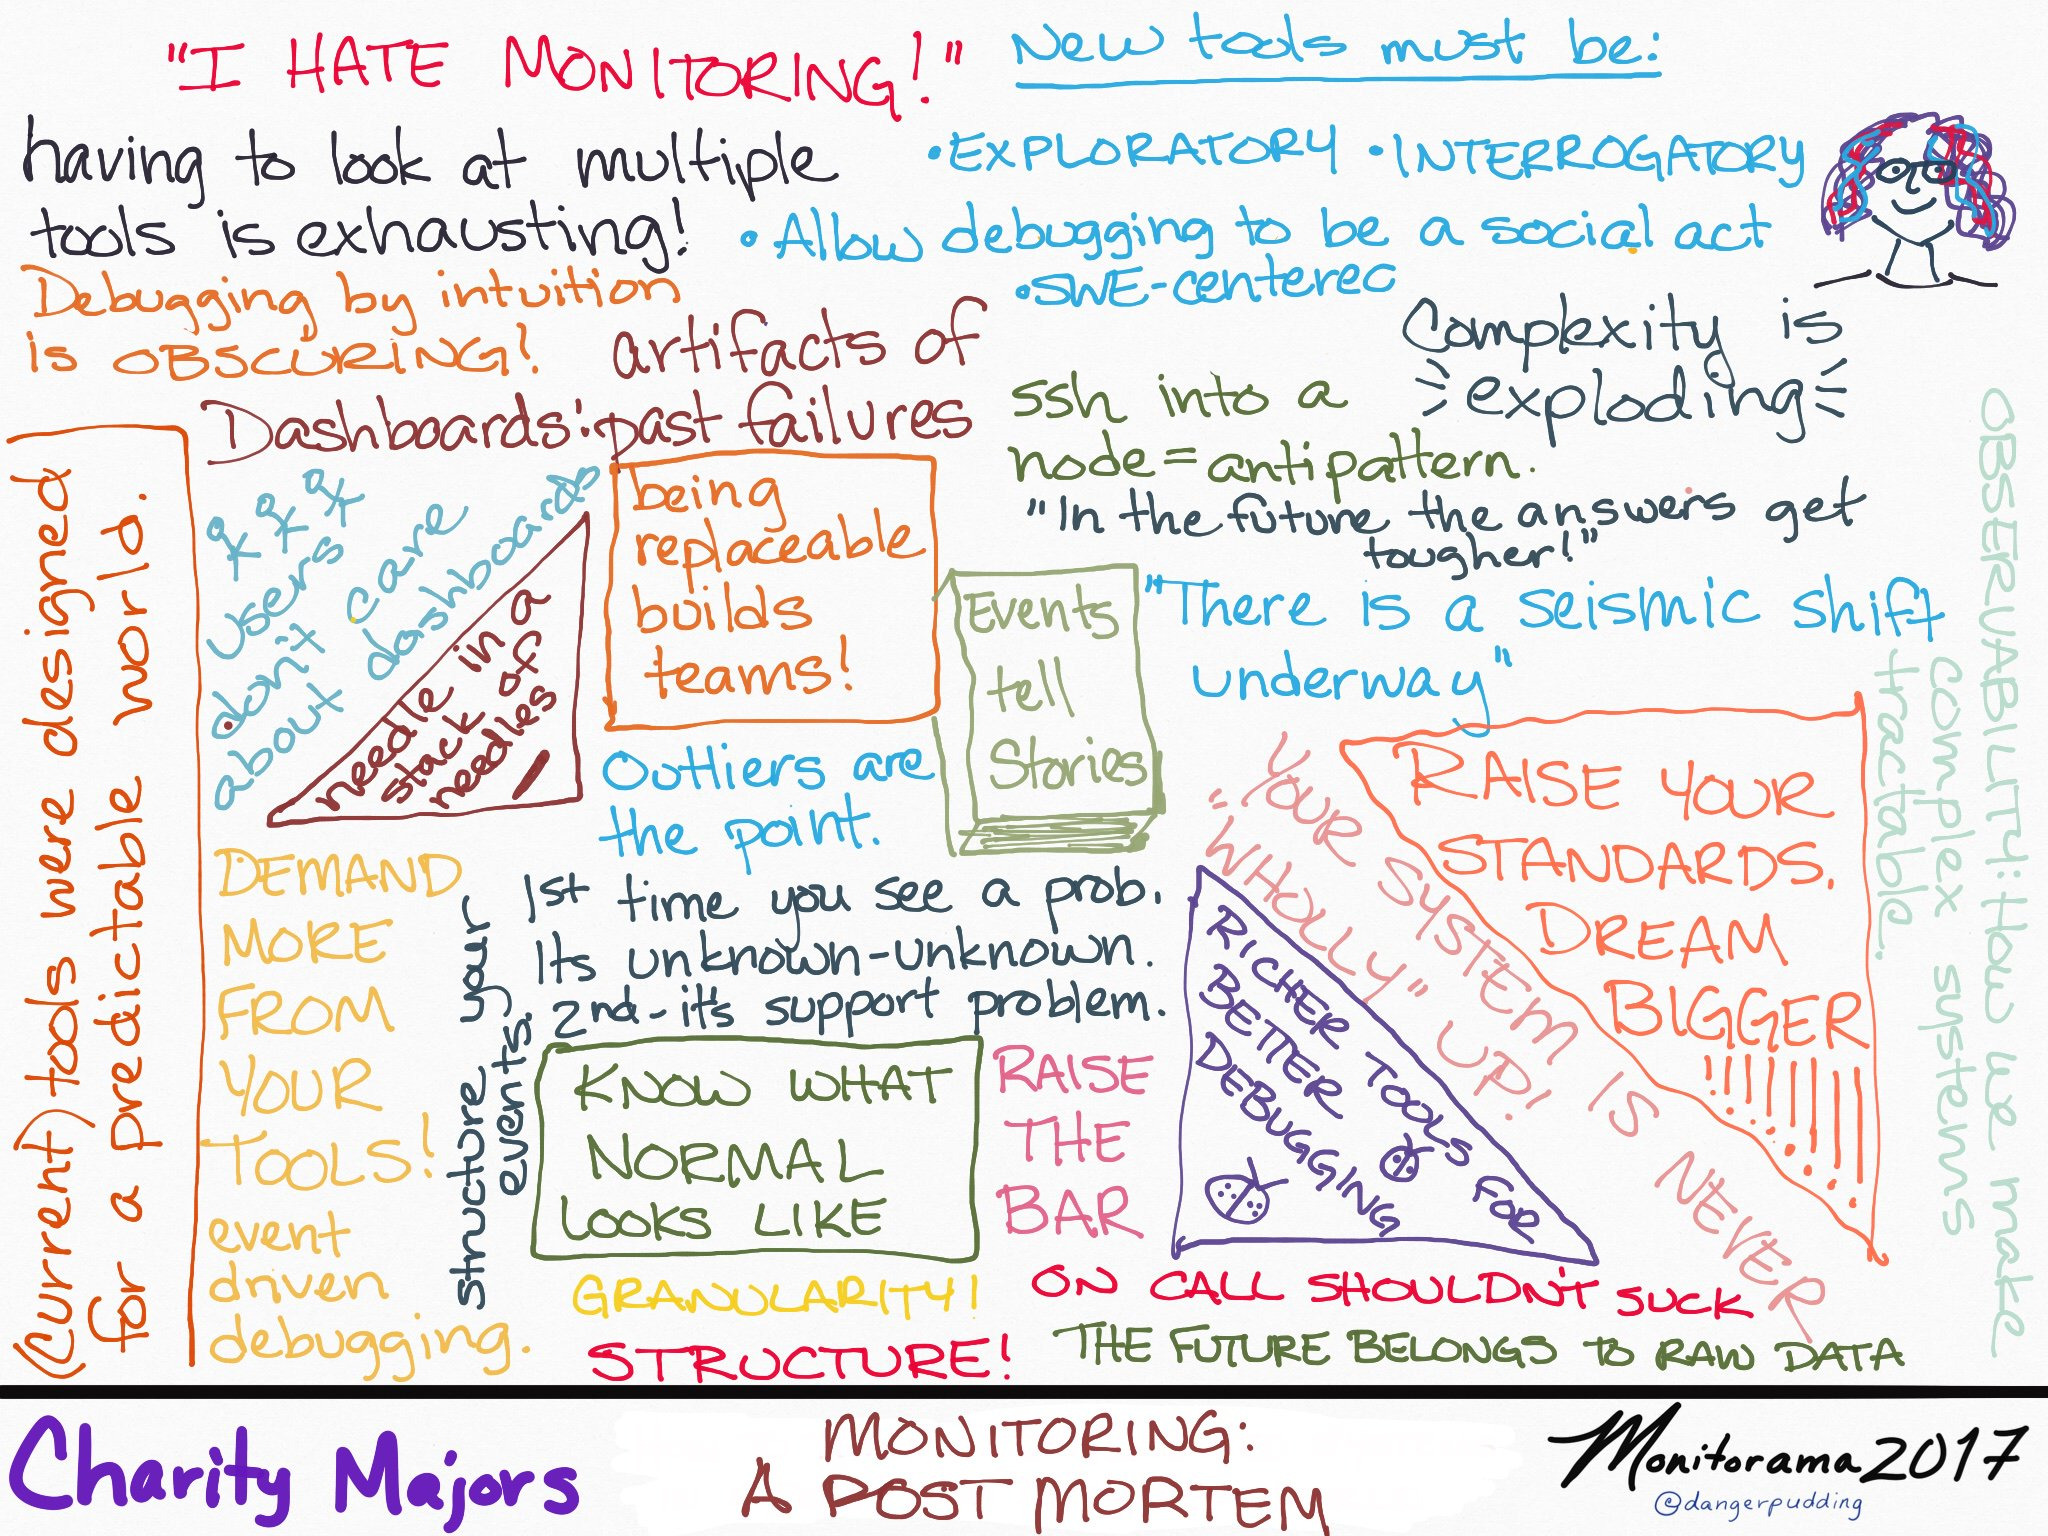 "I HATE MONITORING!"
having to look at multiple
tools is exhausting!
New tools must be:
• EXPLORATORY • INTERROGATORY
• Allow debugging to be a social act
• SWE-centered
Debugging by intuition
is OBSCURING!
artifacts of
Dashboards: past failures
Complexity is
exploding
ssh into a
node = antipattern.
"In the future the answers get
tougher!"
"There is a seismic shift
underway"
(Current) tools were designed
for a predictable world.
users
don't care
about dashboards
needle in a
stack of
needles
being
replaceable
builds
teams!
Events
tell
Stories
Outliers are
the point.
OBSERVABILITY: How we make
complex systems
tractable
RAISE YOUR
STANDARDS.
DREAM
BIGGER
"YOUR SYSTEM IS NEVER
"WHOLLY" UP!
RICHER TOOLS FOR
BETTER
DEBUGGING
DEMAND
MORE
FROM
YOUR
TOOLS!
event
driven
debugging.
structure your
events.
1st time you see a prob.
Its unknown-unknown.
2nd - it's support problem.
KNOW WHAT
NORMAL
LOOKS LIKE
RAISE
THE
BAR
GRANULARITY!
STRUCTURE!
ON CALL SHOULDN'T SUCK
THE FUTURE BELONGS TO RAW DATA
Charity Majors
MONITORING:
A POST MORTEM
Monitorama 2017
@dangerpudding